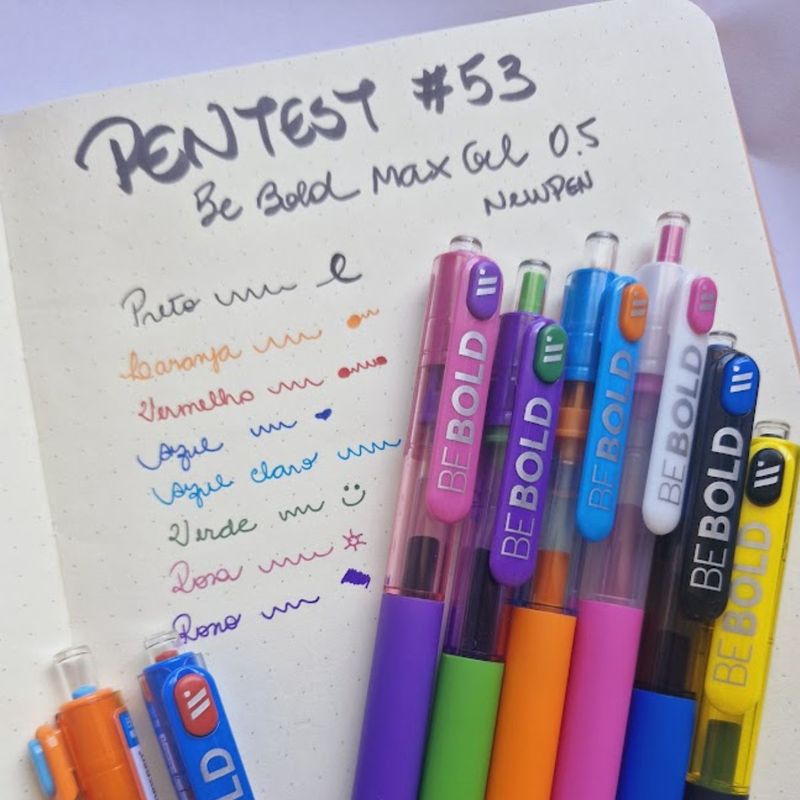 PENTEST #53
Be Bold Max Gel 0.5
NEWPEN
Preto
Laranja
Vermelho
Azul
Azul claro
Verde
Rosa
Roxo
BEBOLD
BEBOLD
BEBOLD
BEBOLD
BEBOLD
BEBOLD
LD